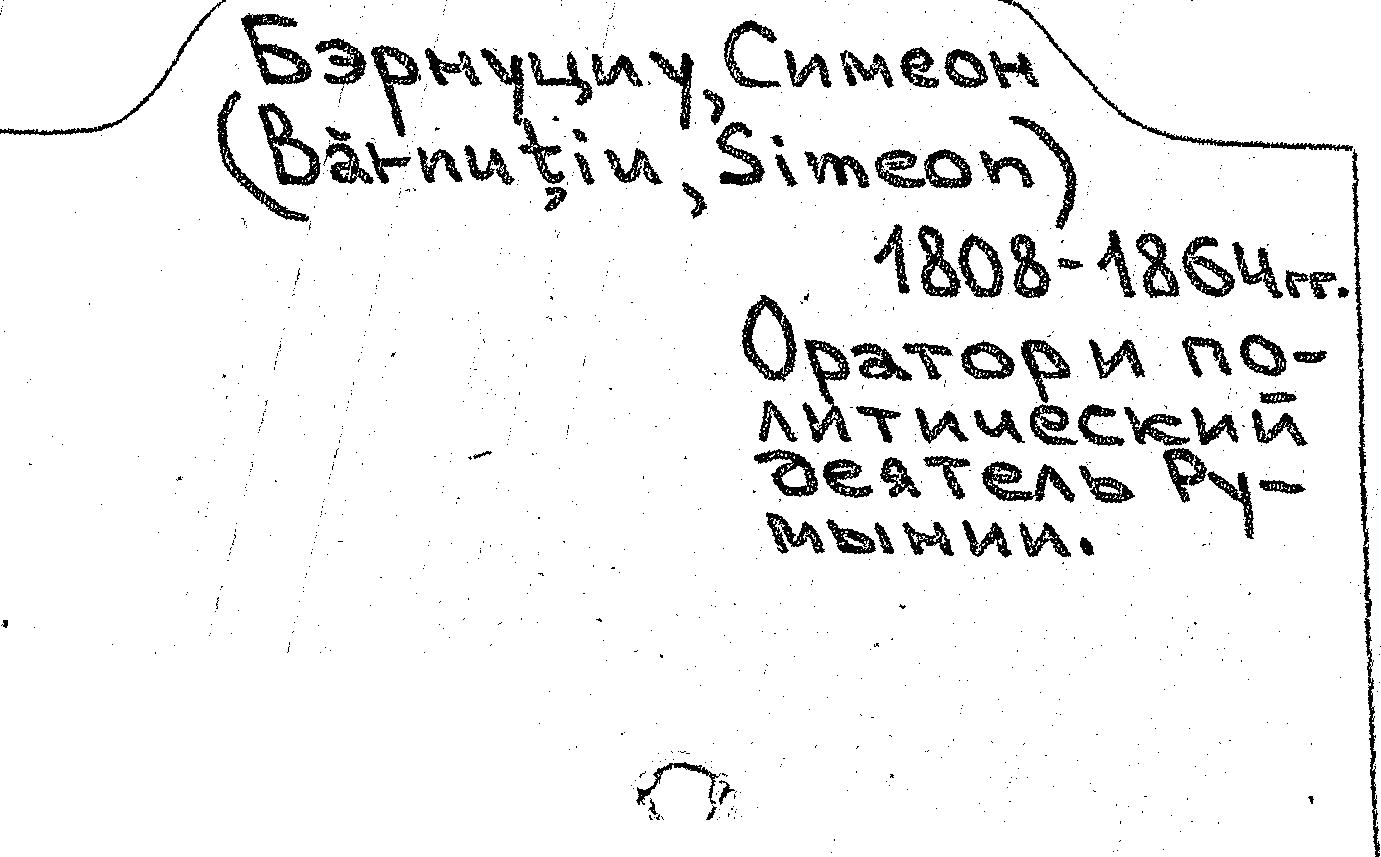 Бэрнуциу, Симеон
(Bărnuţiu, Simeon)
1808-1864гг.
Оратор и по-
литический
деятель Ру-
мынии.